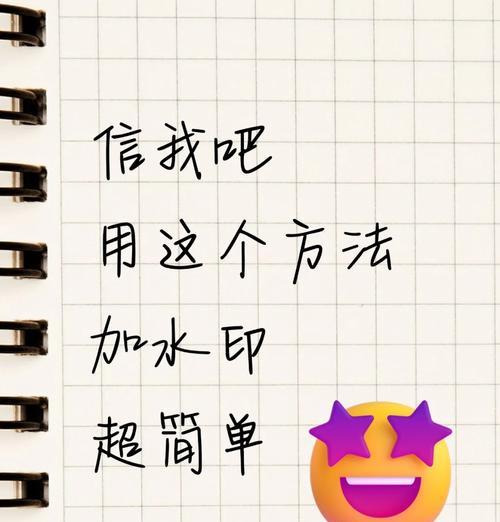 信我吧
用这个方法
加水印
超简单